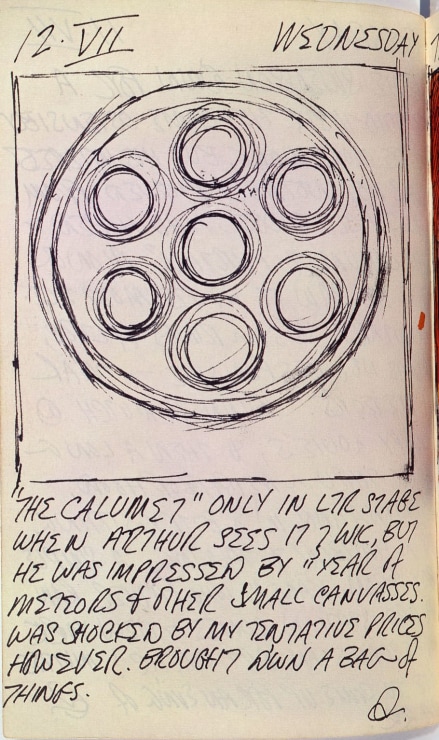 12·VII WEDNESDAY
"THE CALUMET" ONLY IN LTR STAGE
WHEN ARTHUR SEES IT WK, BUT
HE WAS IMPRESSED BY "YEAR OF
METEORS & OTHER SMALL CANVASSES.
WAS SHOCKED BY MY TENTATIVE PRICES
HOWEVER. BROUGHT DOWN A BAG OF
THINGS.